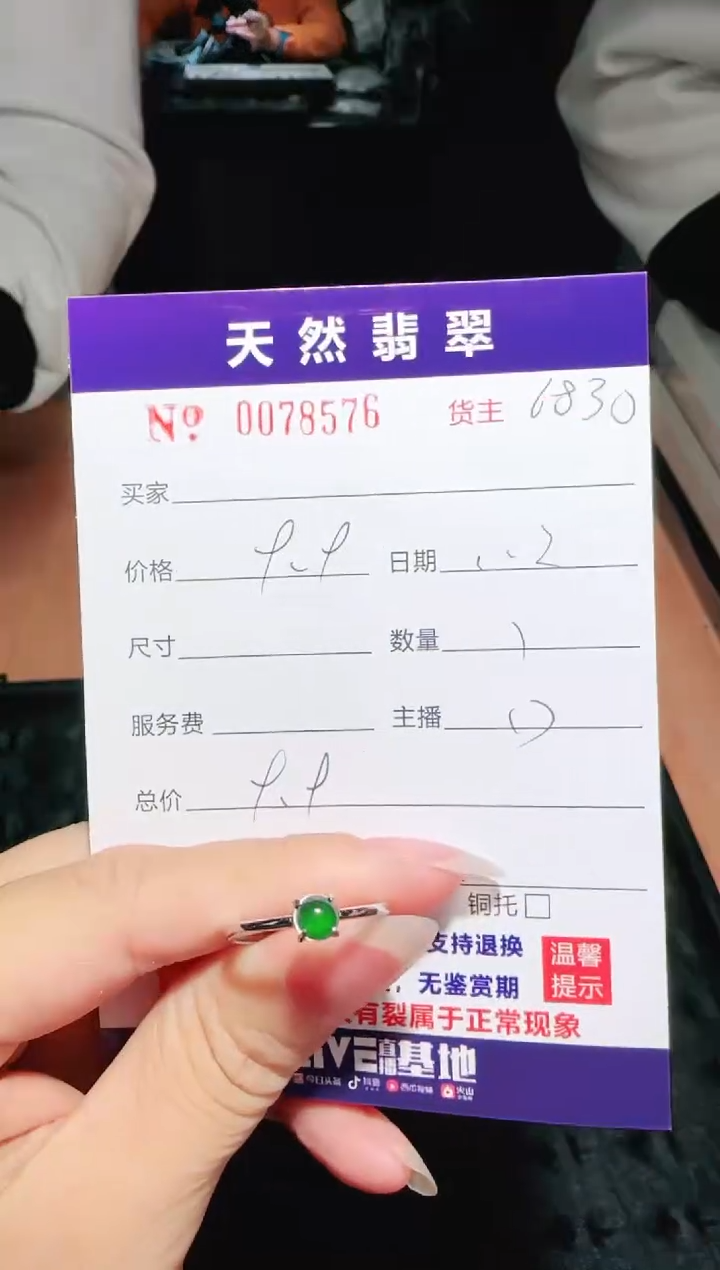 天然翡翠
No 0078576 货主 6830
买家
价格 日期
尺寸 数量
服务费 主播
总价
铜托
支持退换 温馨
，无鉴赏期 提示
有裂属于正常现象
LIVE直播基地
今日头条 抖音 西瓜视频 火山